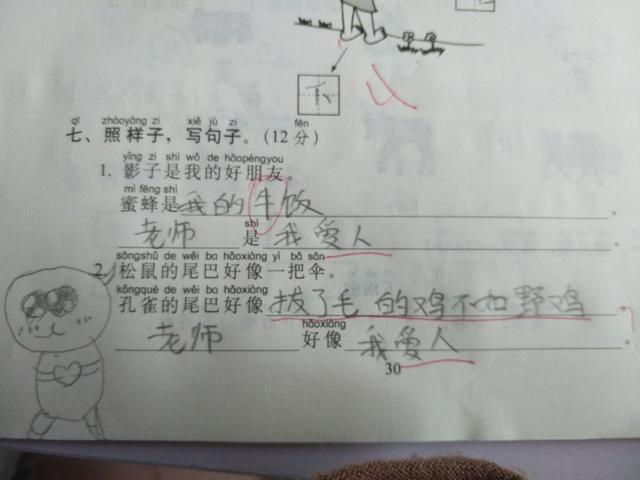 qī zhàoyàng zi xiě jù zi fēn
七、照样子，写句子。(12分)
yǐng zi shì wǒ de hǎopéngyou
1. 影子是我的好朋友。
mì fēng shì
蜜蜂是我的牛饭。
shì
老师是我爱人。
sōngshǔ de wěi ba hǎoxiàng yì bǎ sǎn
2. 松鼠的尾巴好像一把伞。
kǒngquè de wěi ba hǎoxiàng
孔雀的尾巴好像拔了毛的鸡不如野鸡。
hǎoxiàng
老师好像我爱人。
30